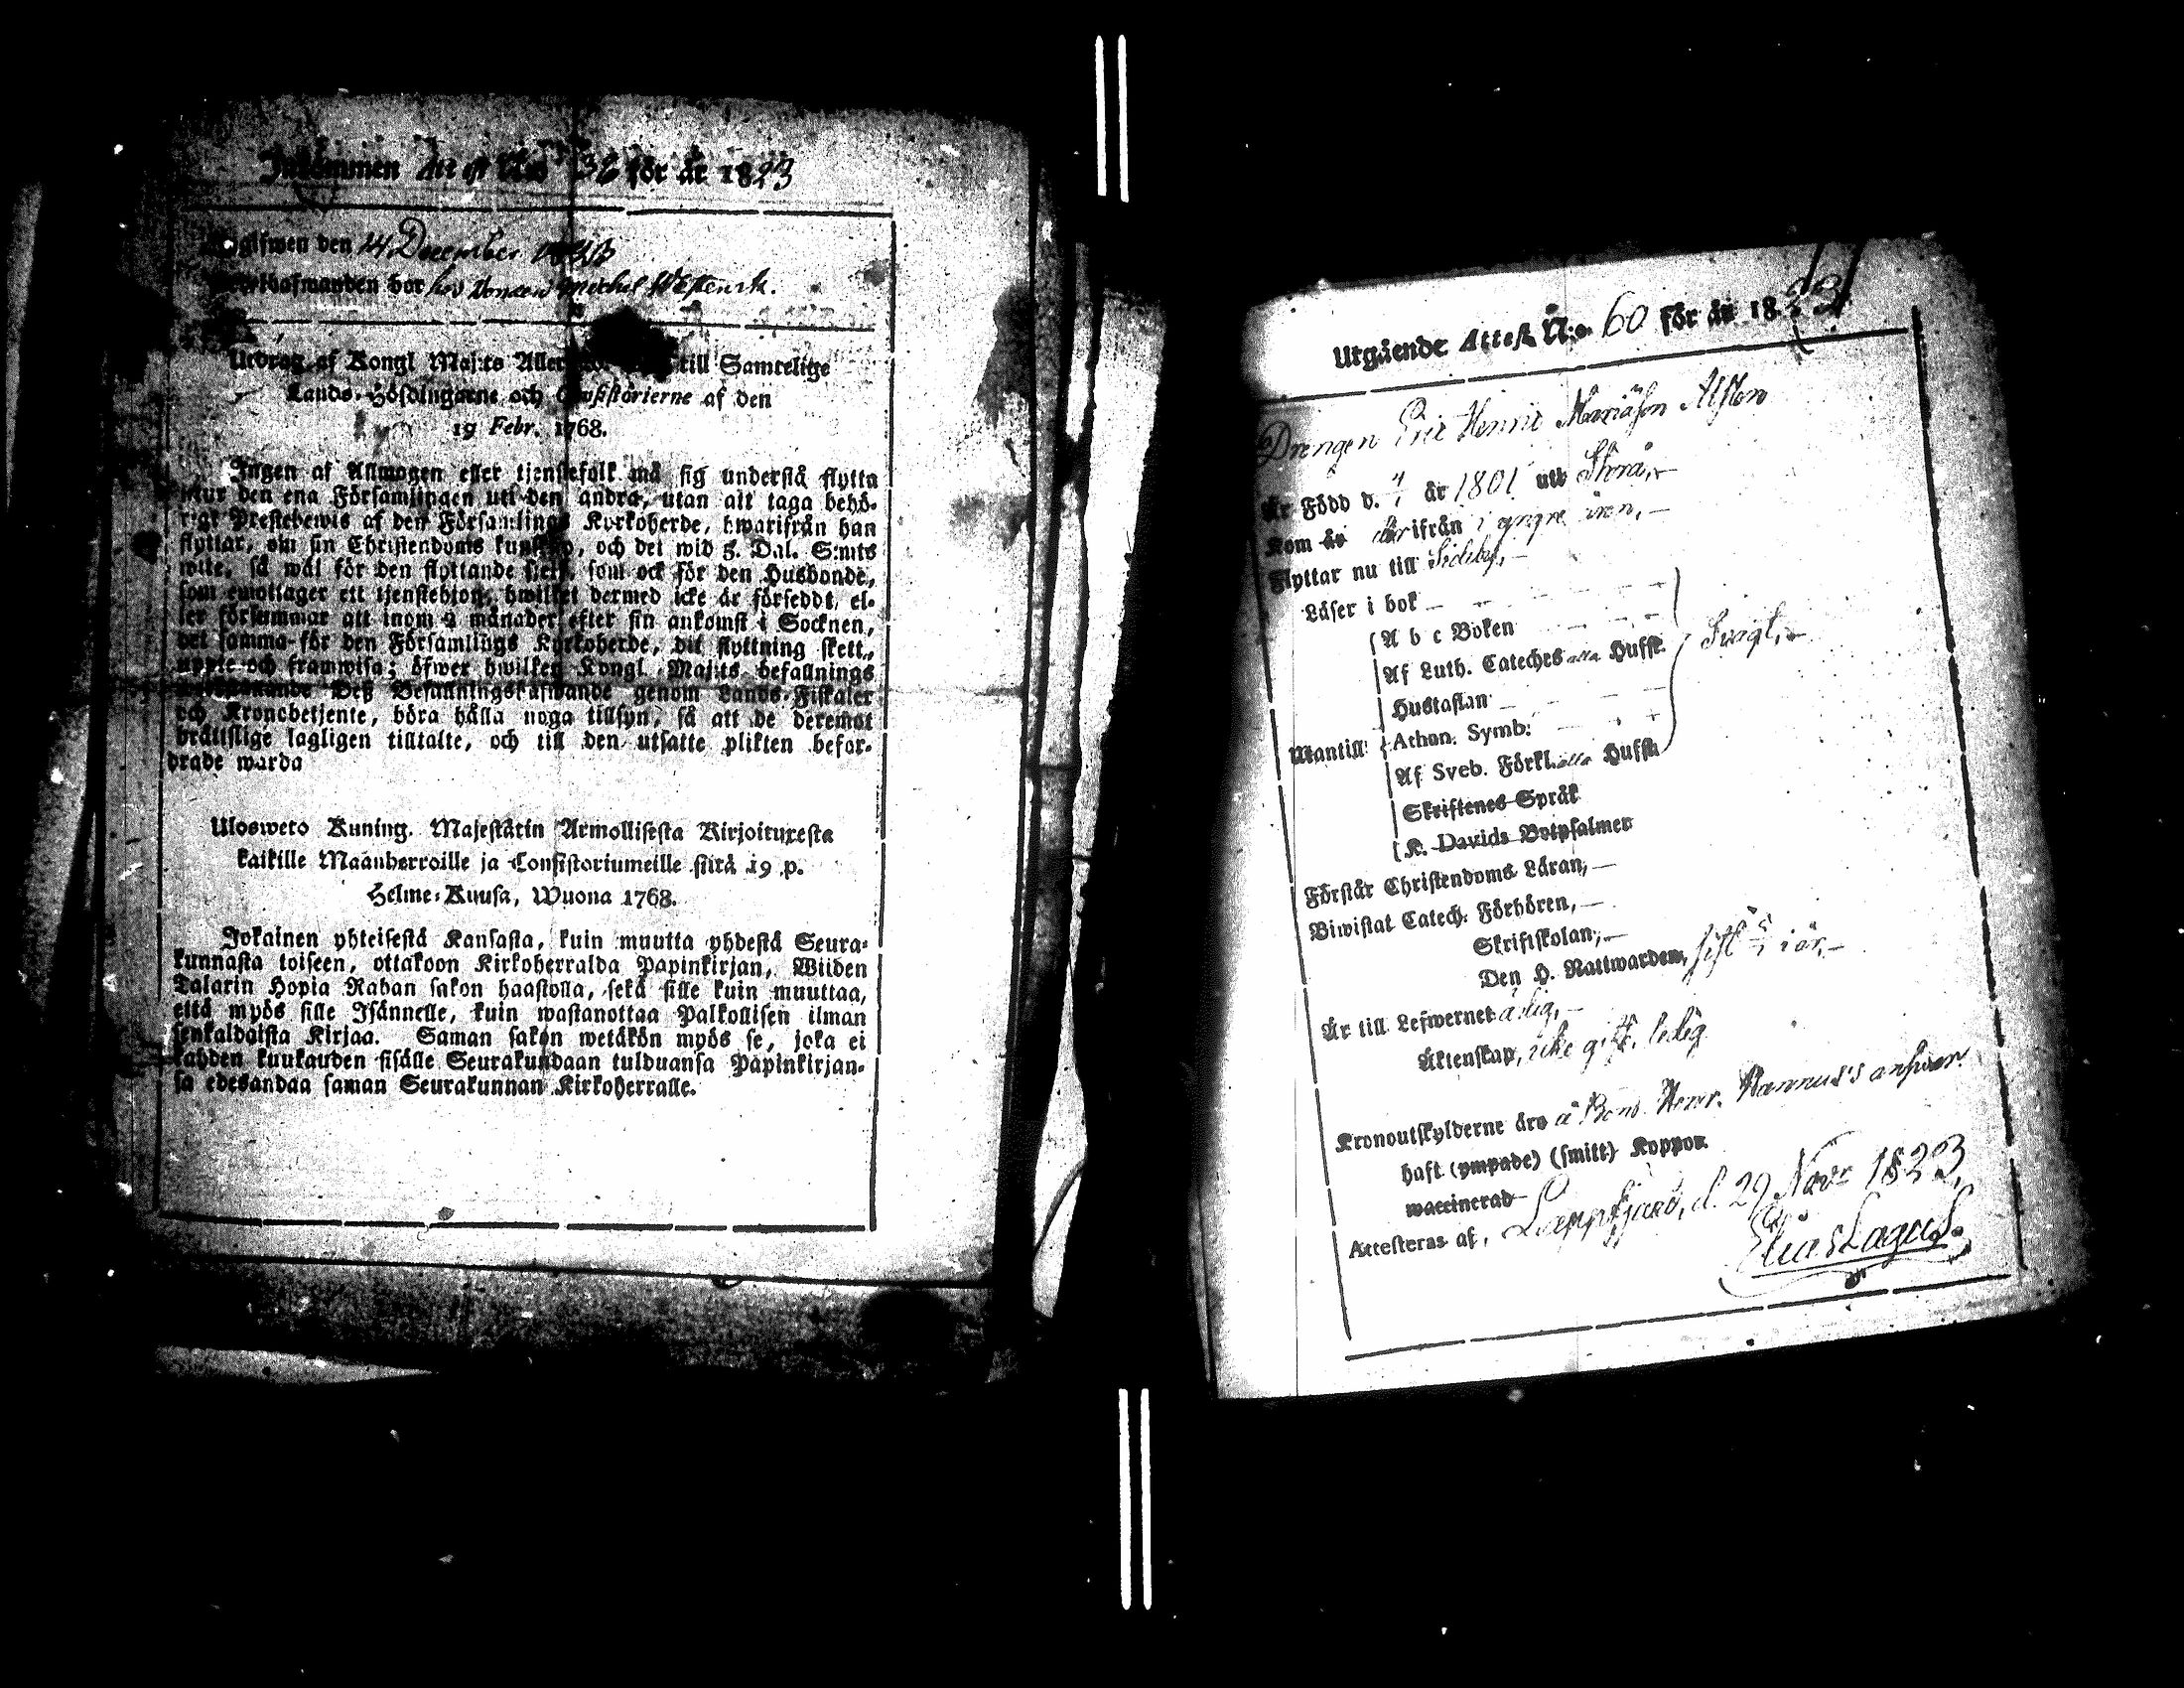 Inkommen Attest No 36 för år 1823
Afgifwen den 24 December 1823
Innehafwanden bor hos Bonden Michel
Utdrag af Kongl Maj:ts till Samtelige
Lands-Höfdingarne och Consistorierne af den
19 Febr. 1768.
Ingen af Allmogen eller tjenstefolk må sig understå flytta
utur den ena Församlingen uti den andra, utan att taga behö-
rigt Prestebewis af den Församlings Kyrkoherde, hwarifrån han
flyttar, om sin Christendoms kunskap, och det wid 5. Dal. S:mts
wite, så wäl för den flyttande sielf, som ock för den Husbonde,
som emottager ett tjenstehjon, hwilket dermed icke är försedt, el-
ler försummar att inom 2 månader efter sin ankomst i Socknen,
det samma för den Församlings Kyrkoherde, dit flyttning skett,
uppte och framwisa; öfwer hwilket Kongl. Maj:ts befallnings
Deß Befallningshafwande genom Lands-Fiskaler
och Kronobetjente, böra hålla noga tillsyn, så att de deremot
brottslige lagligen tilltalte, och till den utsatte plikten befor-
drade warda
Ulosweto Kuning. Majestätin Armollisesta Kirjoituxesta
kaikille Maanherroille ja Consistoriumeille siitä 19 p.
Helme-Kuusa, Wuona 1768.
Jokainen yhteisestä Kansasta, kuin muutta yhdestä Seura-
kunnasta toiseen, ottakoon Kirkoherralda Papinkirjan, Wiiden
Talarin Hopia Rahan sakon haastolla, sekä sille kuin muuttaa,
että myös sille Isännelle, kuin wastanottaa Palkollisen ilman
senkaldaista Kirjaa. Saman sakon wetäkön myös se, joka ei
kahden kuukauden sisälle Seurakundaan tulduansa Papinkirjan-
sa edesandaa saman Seurakunnan Kirkoherralle.
Utgående Attest N:o 60 för år 1823
Drengen Eric Henric Mariäson Alsten
Är Född d. 4/7 år 1801 uti Storå,
Kom år därifrån i yngre åren,
Flyttar nu till Sideby,
Läser i bok
A b c Boken
Af Luth. Cateches alla Hufst.
Hustaflan
Mantill:
Athan. Symb:
Af Sveb. Förkl. alla Hufst.
Svagt,
Skriftenes Språk
K. Davids Botpsalmer
Förstår Christendoms Läran,
Biwistat Catech. Förhören,
Skriftskolan,
Den H. Nattwarden, sist i år,
Är till Lefwernet ärlig,
Äktenskap, icke gift, ledig
Kronoutskylderne äro å Bond. Henr. Rannus's answar.
haft (ympade) (smitt) Koppor
waccinerad
Attesteras af, Lappfjärd, d. 29 Novr 1823,
Elias Lagus.